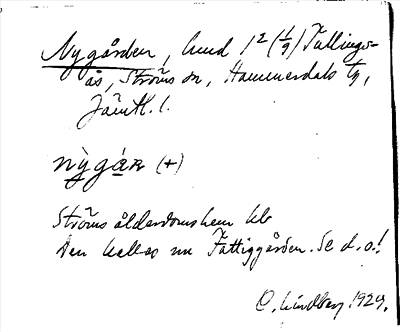 Nygården, hmd 1² (1/9) Fullings-
ås, Ströms sn, Hammerdals tg,
Jämtl. l.
nỳgáṛn (+)
Ströms ålderdomshem kb
Den kallas nu Fattiggården. Se d. o.!
O. Lindberg 1929.